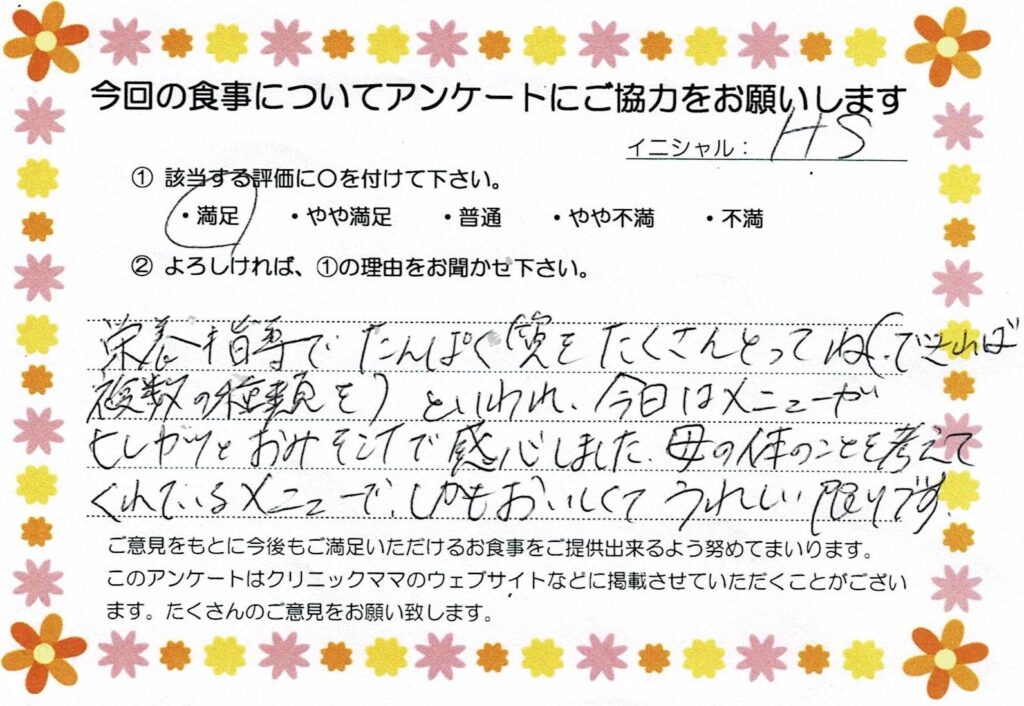 今回の食事についてアンケートにご協力をお願いします
イニシャル： HS
① 該当する評価に〇を付けて下さい。
・満足 ・やや満足 ・普通 ・やや不満 ・不満
② よろしければ、①の理由をお聞かせ下さい。
栄養指導でたんぱく質をたくさんとってね(できれば
複数の種類を)といわれ、今日はメニューが
ヒレカツとおみそ汁で感心しました。母の体のことを考えて
くれているメニューで、しかもおいしくてうれしい限りです。
ご意見をもとに今後もご満足いただけるお食事をご提供出来るよう努めてまいります。
このアンケートはクリニックママのウェブサイトなどに掲載させていただくことがござい
ます。たくさんのご意見をお願い致します。